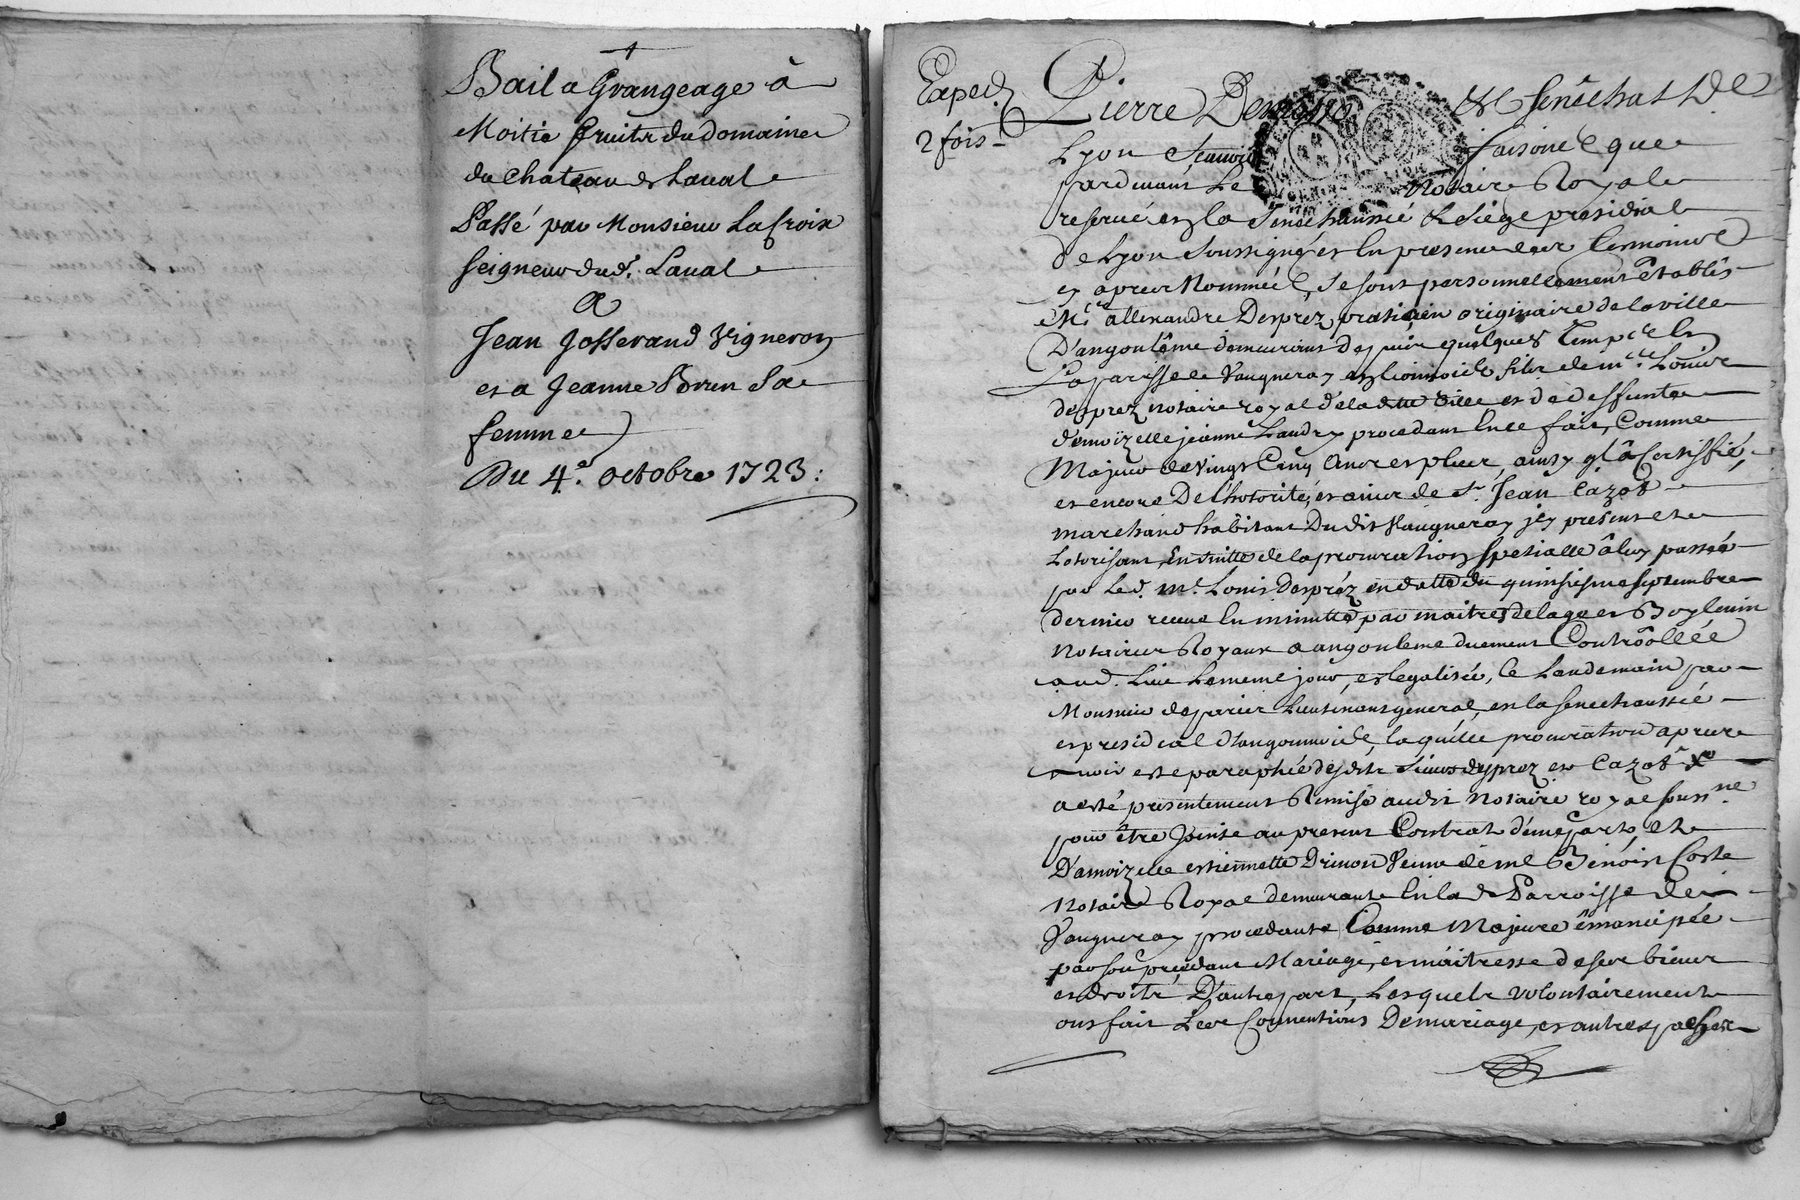 Bail a Grangeage à
Moitié fruits du domaine
du Chateau de Laual
Passé par Monsieur Lacroix
seigneur dud. Laual
A
Jean Josserand Vigneron
et a Jeanne Brun Sa
femme
Du 4e. octobre 1723:
Exped.
2 fois
Pierre Senéchal De
Lyon Scauoir faisons que
pardeuant Le Notaire Royal
reserué en la Senéchaussée & Siége présidial
de Lyon Soussigné et En presence des temoins
cy apres Nommées, se sont personnellement établis
Mre. allexandre Desprez praticien originaire de la ville
D'angoulême demeurant depuis quelques Temps En
La parisse de Vaugneray en Lionnois fils de me. Louis
desprez notaire royal de la ditte Ville et de deffunte
demoizelle jeanne Landry procedant En ce fait, Comme
Majeur de vingt Cinq Ans et plus, ainsy qu'il a Certiffié,
et encore De L'hotorité, et auis de Sr. Jean Cazot
marchand habitant Dudit Vaugneray jcy present et
Lotorisant, En suitte de la procuration spetialle â luy passée
par Led. Me. Louis Despréz en datte du quinsiesme septembre
dernier receue En minutte par maitres delage et
Notaires Royaux a angouleme duement Contrôollée
aud. Lieu Le meme jour, et legalisée, le Lendemain par
Monsieur Lieutenant general, en la senechaussée
et presidial d'angoumois, la quelle procuration apres
auoir esté paraphée desdits Sieurs desprez et Cazot
a esté presentement Remise audit Notaire royal soussne.
pour être Jointe au present Contrat d'une part, et
Damoizelle estiennette Drinon Veuue de me Bénoist Coste
Notaire Royal demeurante En lad. Parroisse de
Vaugneray procedante Comme Majeure émancipée
par son précédant Mariage, et maitresse de ses biens
et droits D'autre part, Lesquels volontairement
ont fait Les Conuentions De mariage, et autres